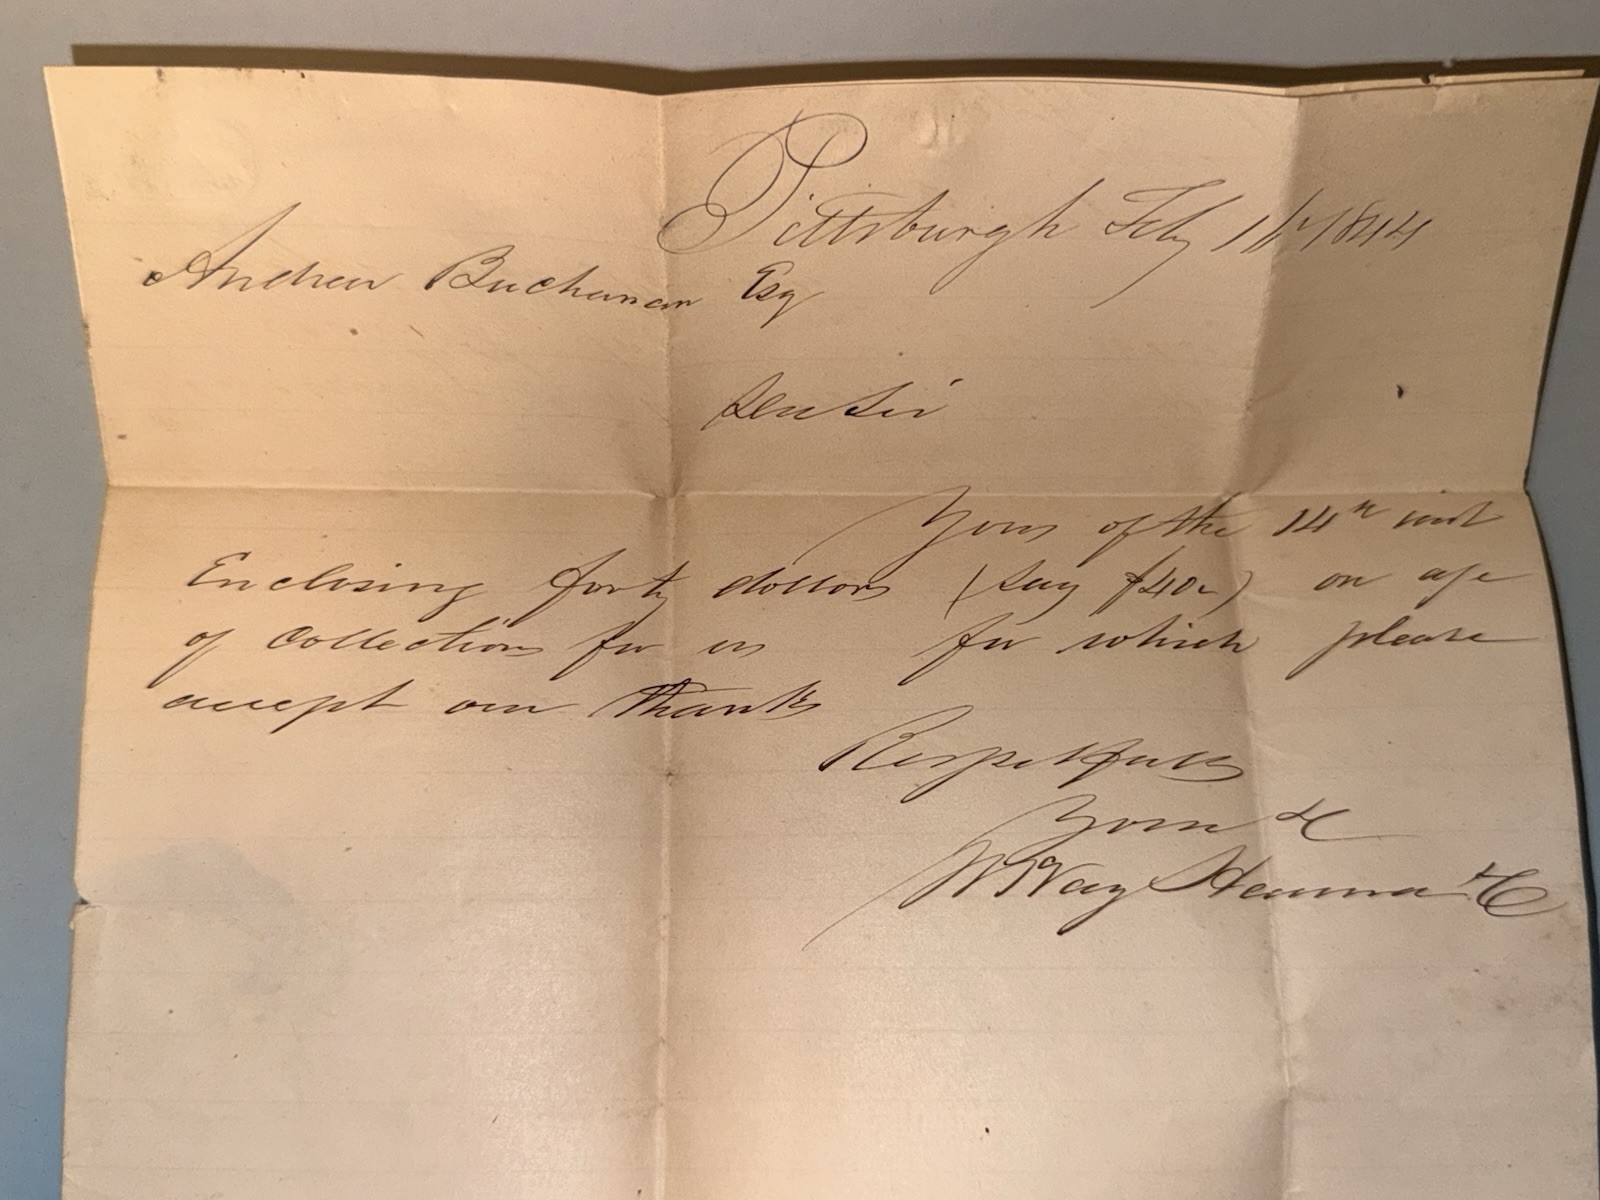 Pittsburgh Feby 1844
Andrew Buchanan Esq
Dear Sir
Yours of the 14th inst
Enclosing forty dollars (Say $40) on a/c
of Collections for us for which please
accept our thanks
Respectfully
Yours &c
& Co